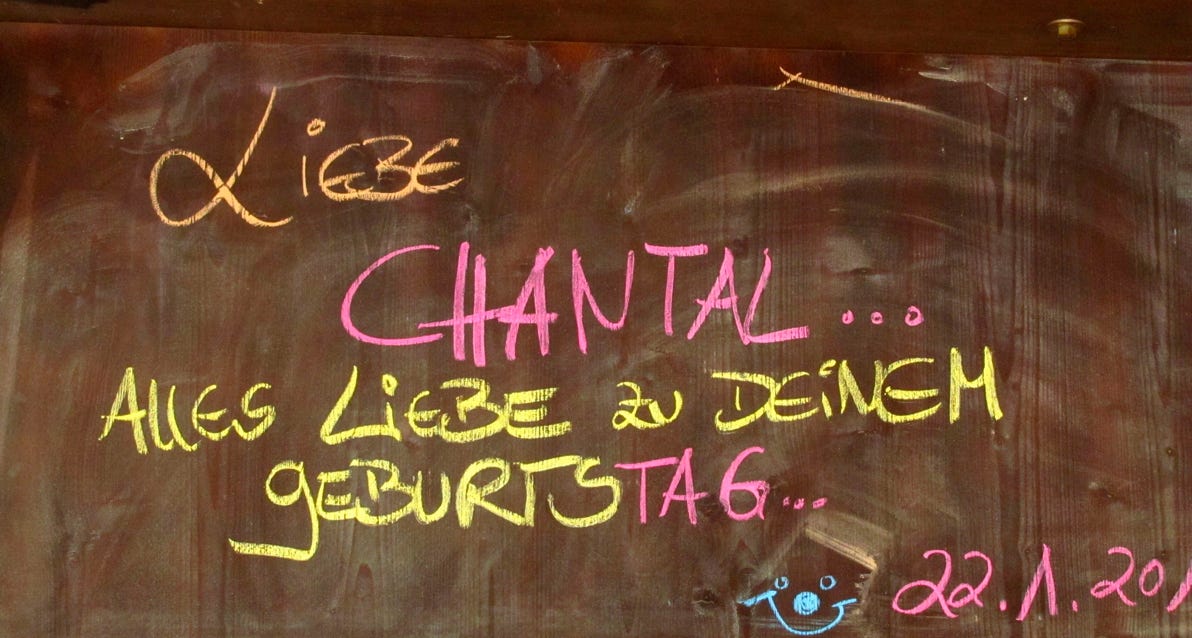 LiEBE
CHANTAL...
ALLES LiEBE zu DEiNEM
gEBURTSTAG...
22.1.201